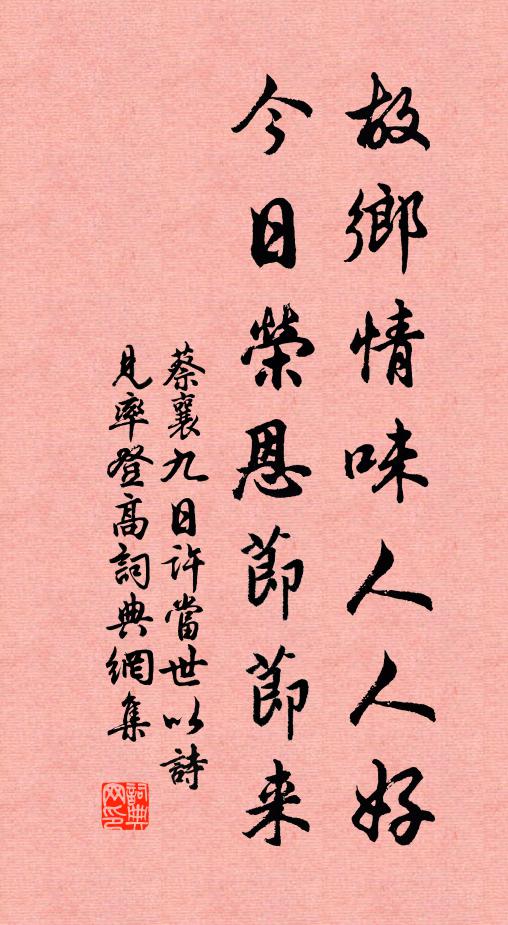 故鄉情味人人好
今日榮恩節節来
蔡襄九日許當世以詩
見率登高詞典網集
詞典网印